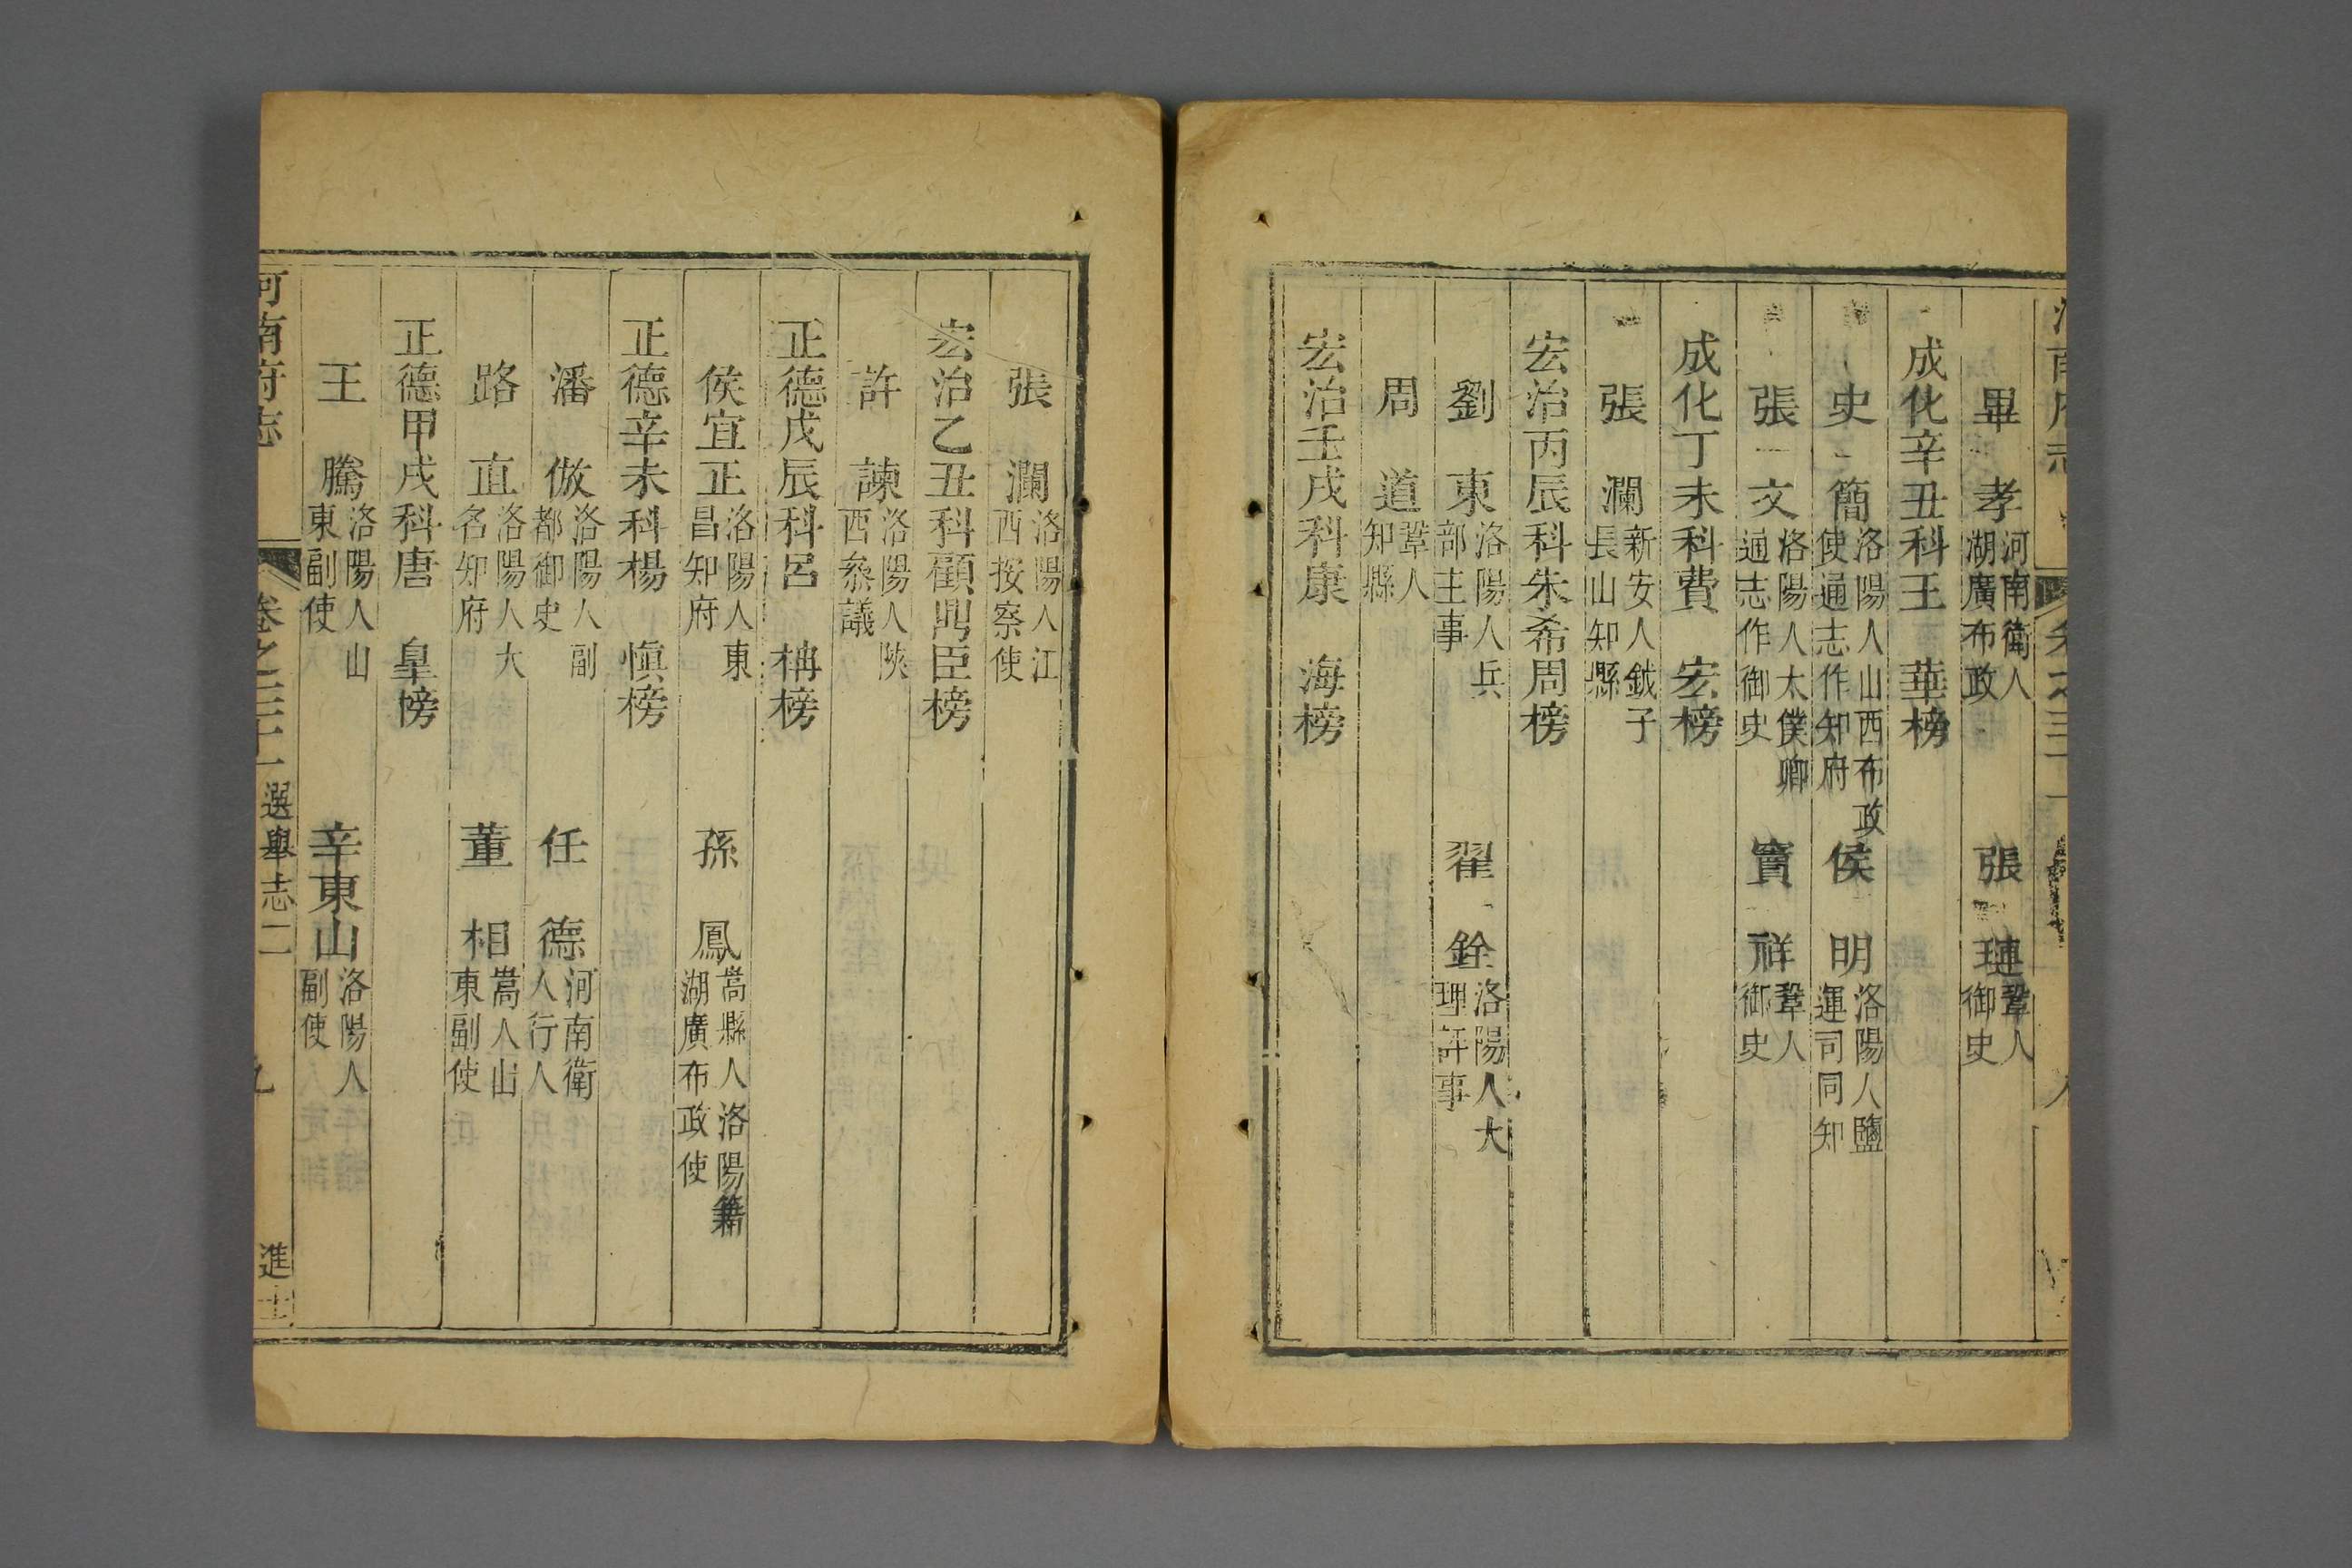 畢　孝河南衛人湖廣布政　張　璉鞏人御史
成化辛丑科王　華榜
史　簡洛陽人山西布政使通志作知府　侯　明洛陽人鹽運司同知
張　文洛陽人太僕卿通志作御史　竇　祥鞏人御史
成化丁未科費　宏榜
張　瀾新安人鉞子長山知縣
宏治丙辰科朱希周榜
劉　東洛陽人兵部主事　翟　銓洛陽人大理評事
周　道鞏人知縣
宏治壬戌科康　海榜
張　瀾洛陽人江西按察使
宏治乙丑科顧鼎臣榜
許　諫洛陽人陝西叅議
正德戊辰科呂　柟榜
侯宜正洛陽人東昌知府　孫　鳳嵩縣人洛陽籍湖廣布政使
正德辛未科楊　慎榜
潘　倣洛陽人副都御史　任　德河南衛人行人
路　直洛陽人大名知府　董　相嵩人山東副使
正德甲戌科唐　皐榜
王　騰洛陽人山東副使　辛東山洛陽人副使
河南府志　卷之三十一　選舉志二　九　進士